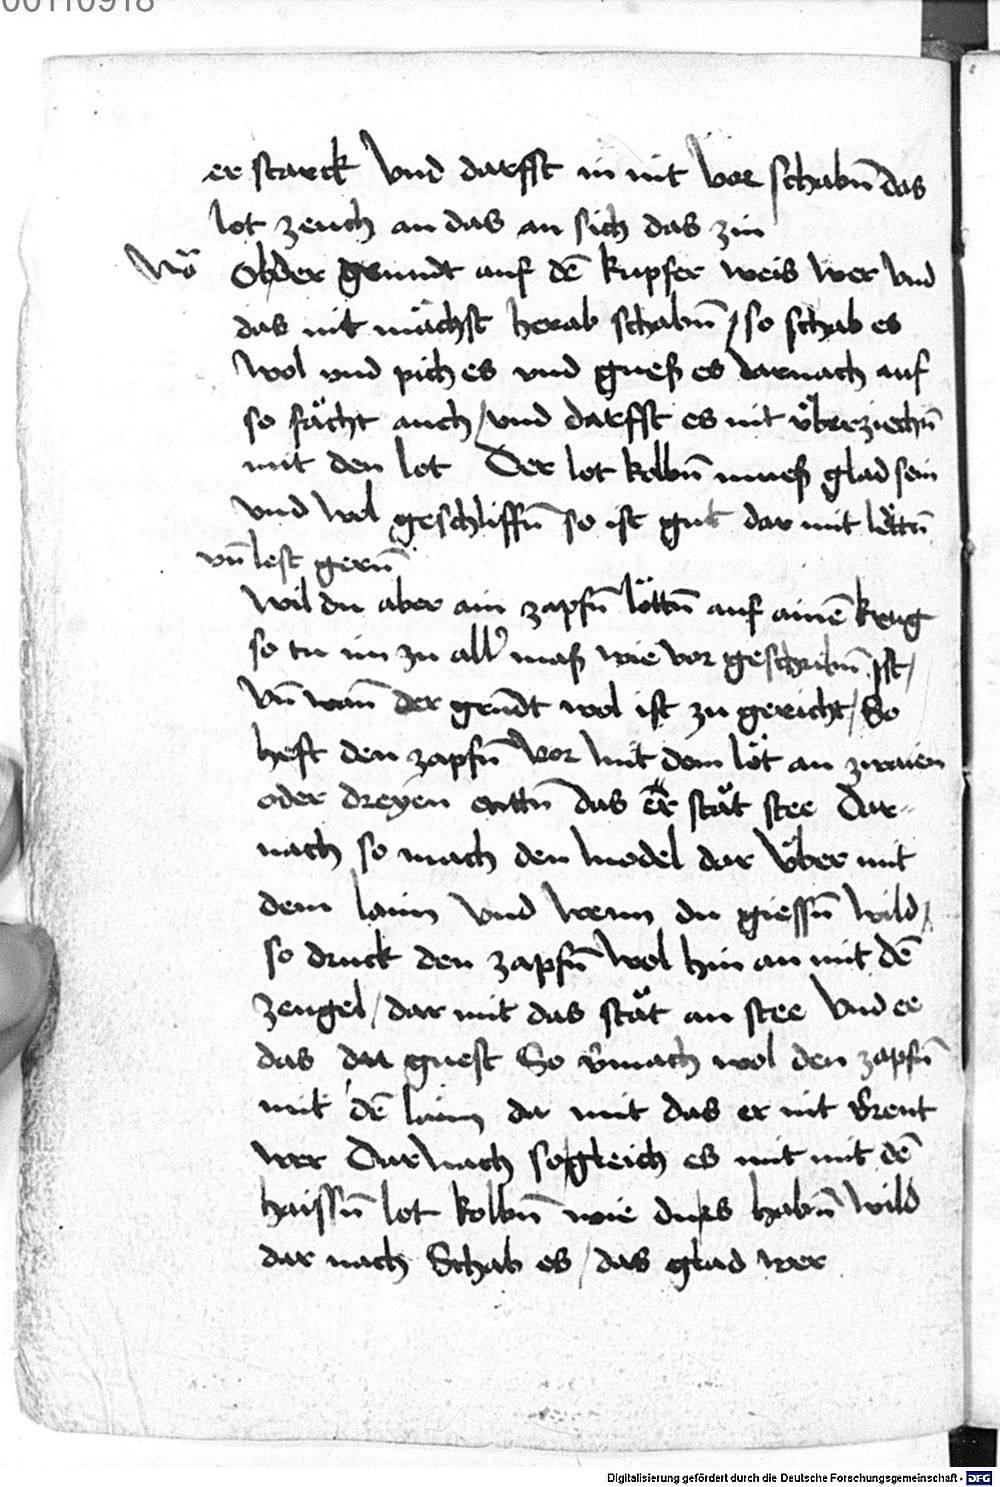 00110918
er starck Vnd darfst in nit vor schabn̄ das
lot zeuch an das an sich das zin
Wo Ob der grundt auf dē kupfer weis wer vnd
das nit mächst herab schabn̄ / so schab es
wol vnd pich es vnd gueß es darnach auf
so facht auch / vnd darfst es nit vberziechn̄
mit den lot Der lot kolbn̄ mueß glad sein
vnd wol geschliffn̄ so ist gut dar mit löttn̄
vn̄ lest gern̄
Wil du aber ain zapfn̄ löttn̄ auf ainē krug
so tu im zu all maß wie vor geschribn̄ ist /
Vn̄ wan̄ der grūdt wol ist zu gericht / So
heft den zapfn̄ vor mit dem löt an zwaien
oder dreyen orttn̄ das er stät stee Dar-
nach so mach den model dar Vber mit
dem laim Vnd wenn du giessn̄ wild /
so druck den zapfn̄ wol hin an mit dē
zengel / dar mit das stät an stee Vnd ee
das du guest So v̄mach wol den zapfn̄
mit dē laim da mit das er nit v̄rent
wer Darnach so gleich es mit mit dē
haissn̄ lot kolbn̄ wie du es habn̄ wild
dar nach Schab es / das glad wer
Digitalisierung gefördert durch die Deutsche Forschungsgemeinschaft - DFG